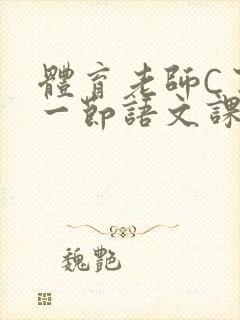 體育老師C
一節語文課
魏艷